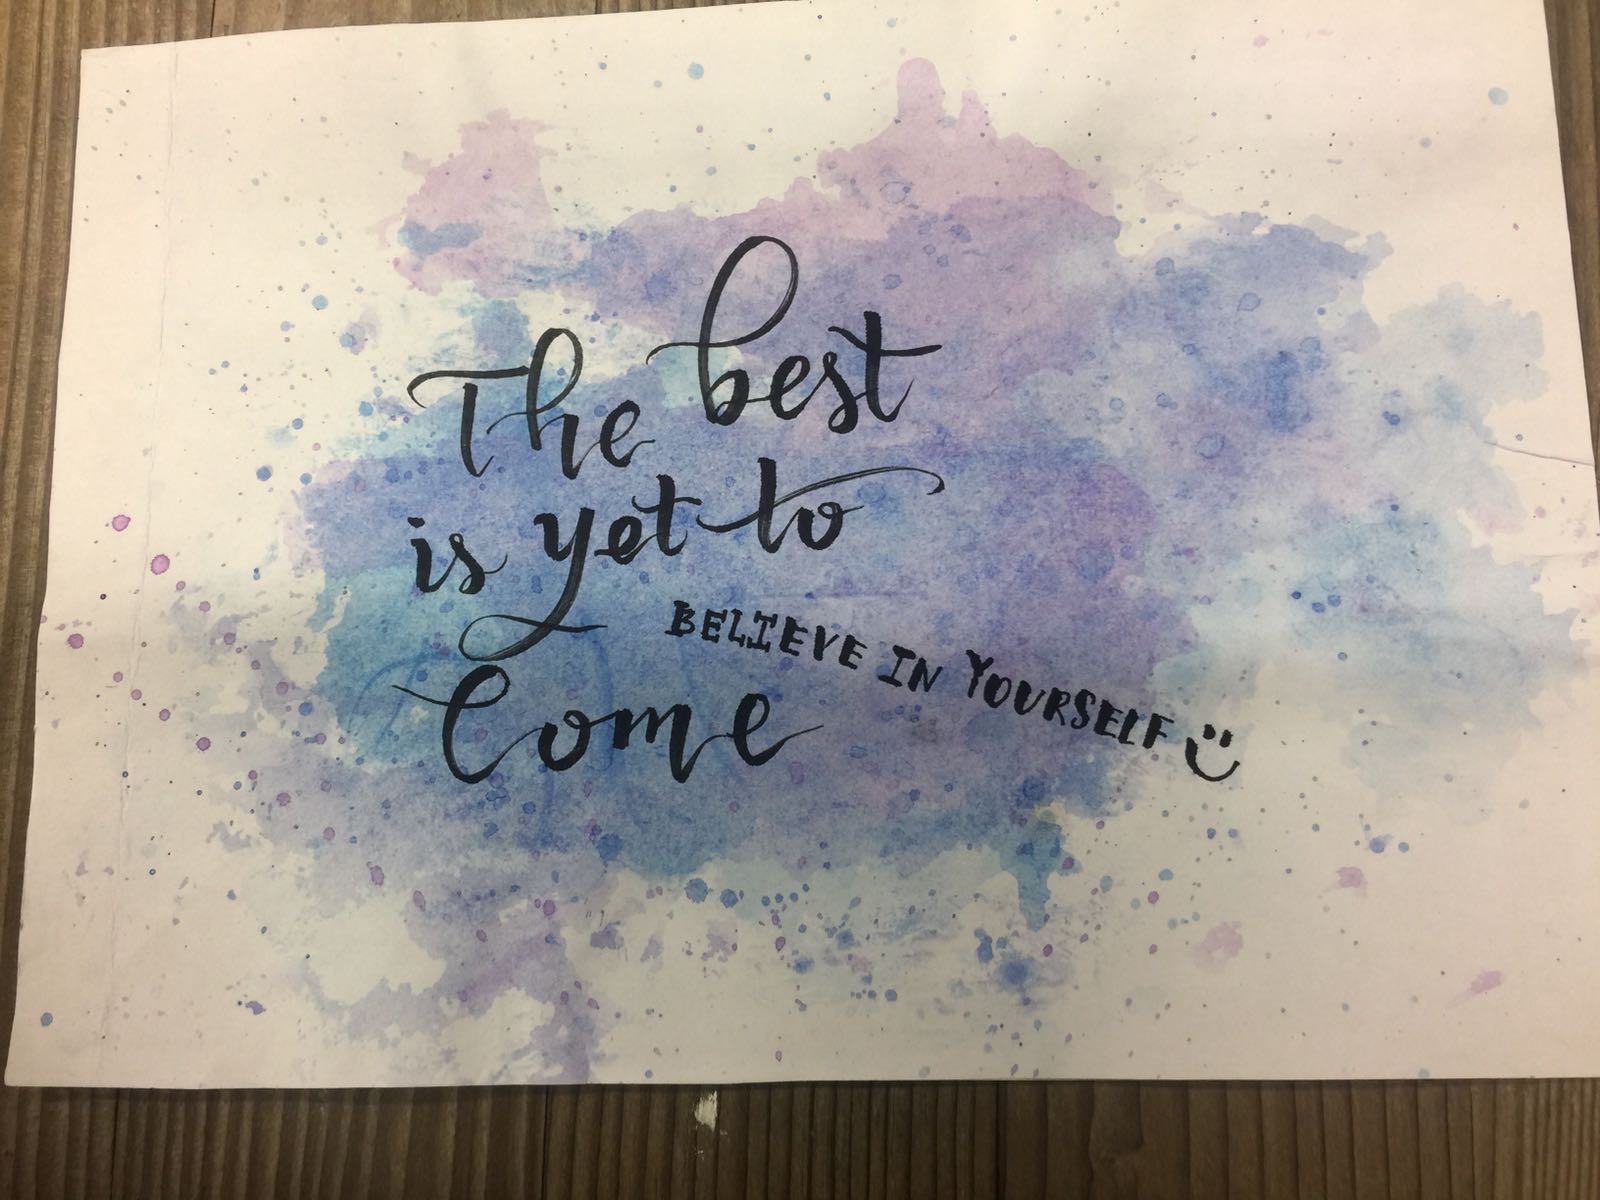 The best
is yet to
Come
BELIEVE IN YOURSELF